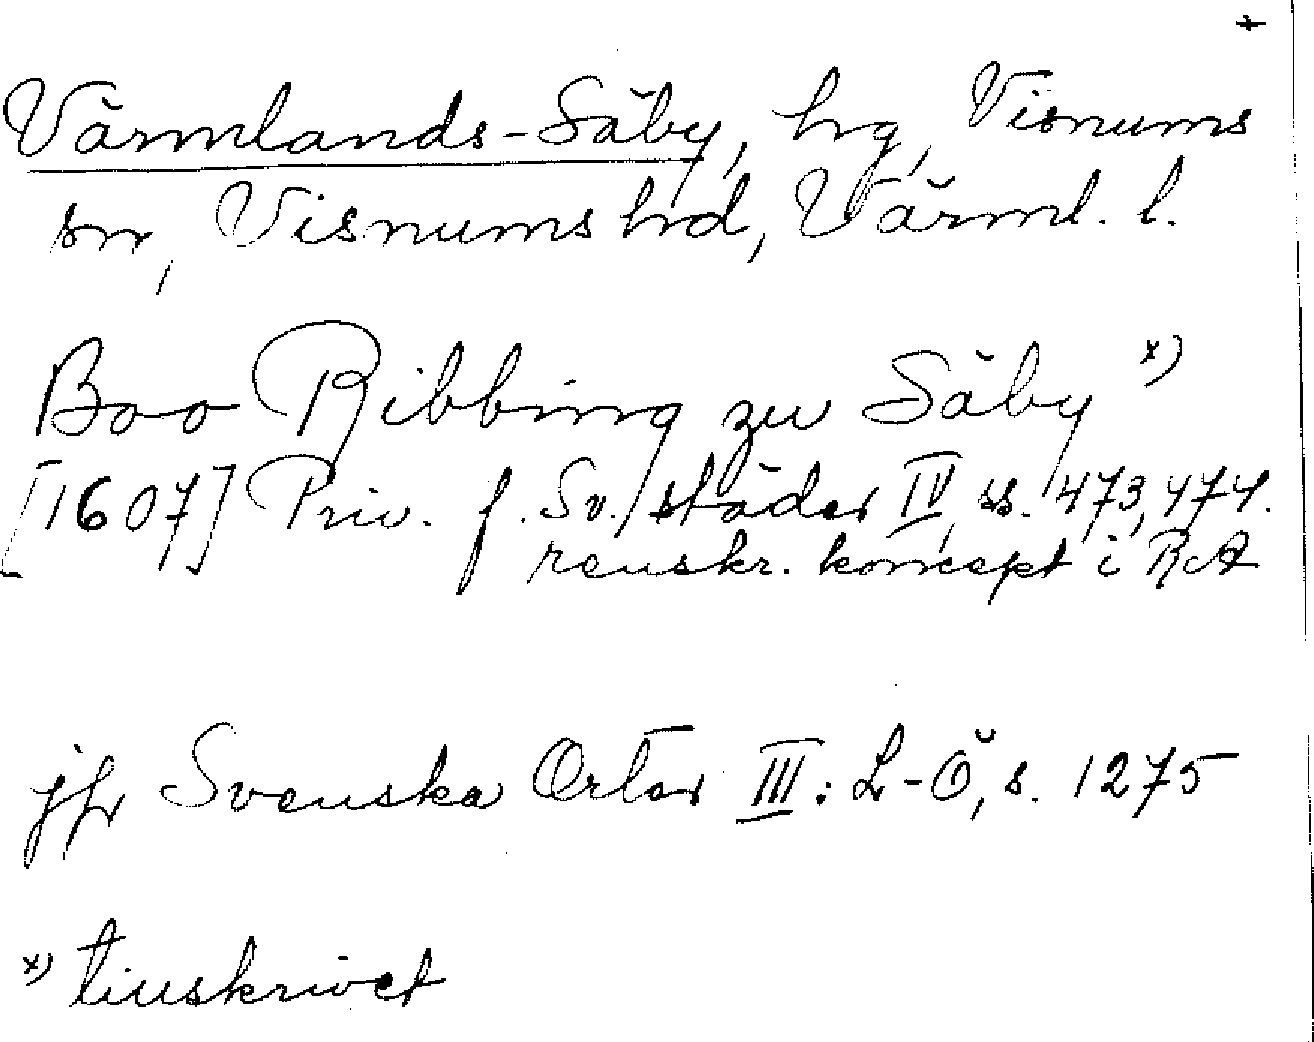 +
Värmlands-Säby, hg, Visnums
sn, Visnums hd, Värml. l.
Boo Ribbing zu Säby x)
[1607] Priv. f. Sv. städer IV, ss. 473, 474.
renskr. koncept i RA
jfr Svenska Orter III: L-Ö, s. 1275
x) tillskrivet